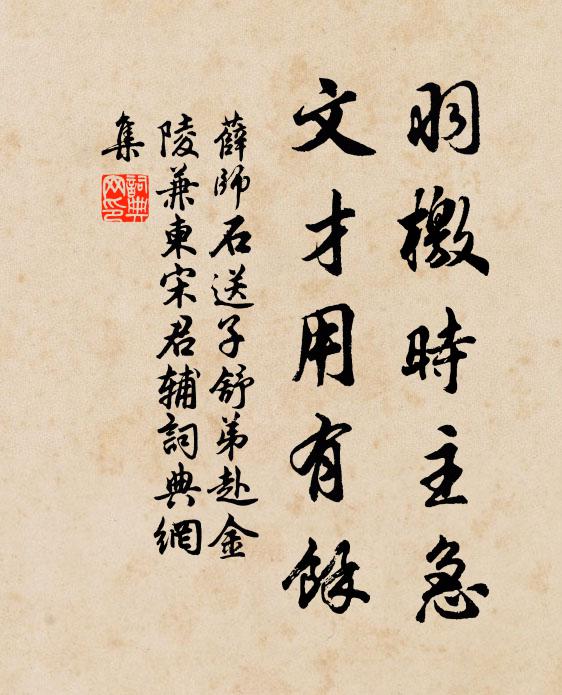 羽檄時主急
文才用有餘
薛師石送子舒弟赴金
陵兼東宋君輔詞典網
集
詞典網印